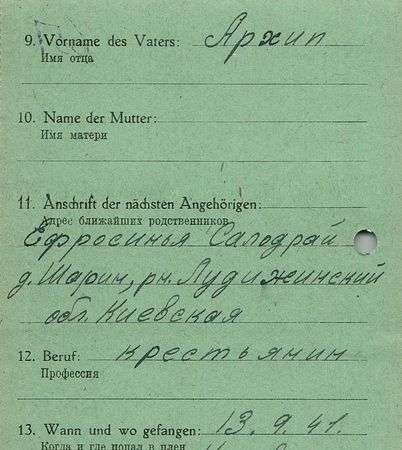 9. Vorname des Vaters: Архип
Имя отца
10. Name der Mutter:
Имя матери
11. Anschrift der nächsten Angehörigen:
Адрес ближайших родственников
Ефросинья Салодрай
д. Шарин, рн. Лудижинский
обл. Киевская
12. Beruf: крестьянин
Профессия
13. Wann und wo gefangen: 13.9.41.
Когда и где попал в плен